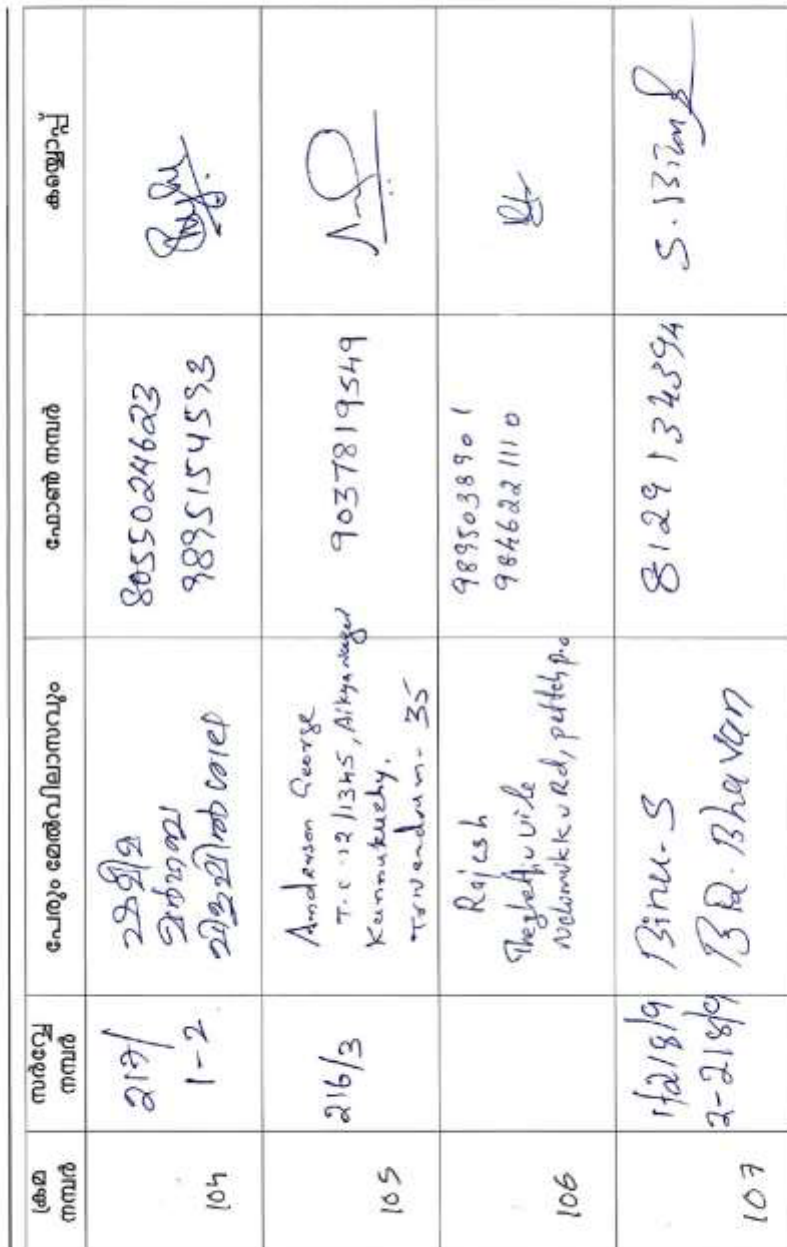 ക്രമ
നമ്പർ
സർവ്വേ
നമ്പർ
പേരും മേൽവിലാസവും
ഫോൺ നമ്പർ
കയ്യൊപ്പ്
104
217/
1-2
8055024623
9895154593
105
216/3
Anderson George
T.C 12/1345, Aikya nagar
Kannukuzhy,
Trivandrum - 35
9037819549
106
Rajesh
Rd, pettah p.o
9895038901
9846221110
107
1/218/9
2-218/9
Binu-S
Bhavan
8129134394